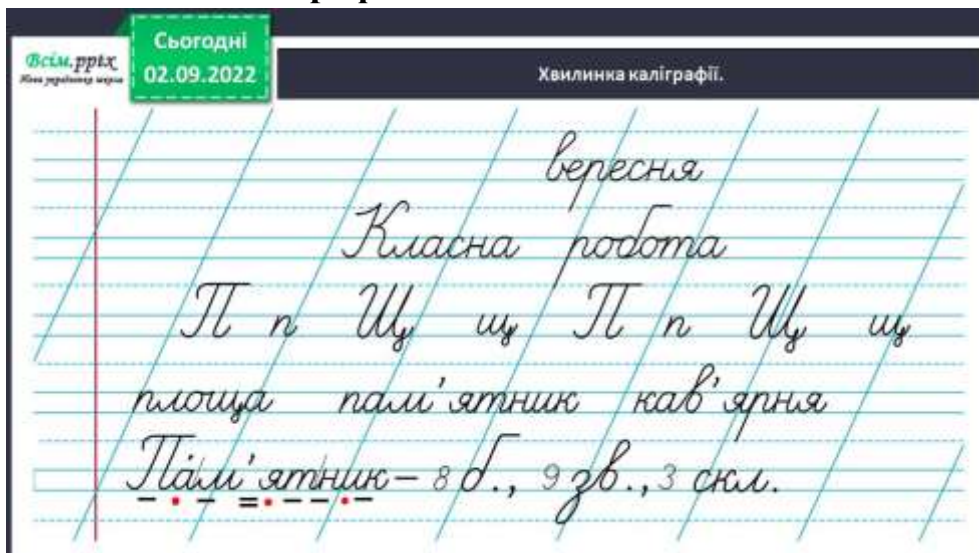 Сьогодні
Всім.pptx
Нова українська школа
02.09.2022
Хвилинка каліграфії.
вересня
Класна робота
П п Щ щ П п Щ щ
площа пам'ятник кав'ярня
Пам'ятник – 8 б., 9 зв., 3 скл.